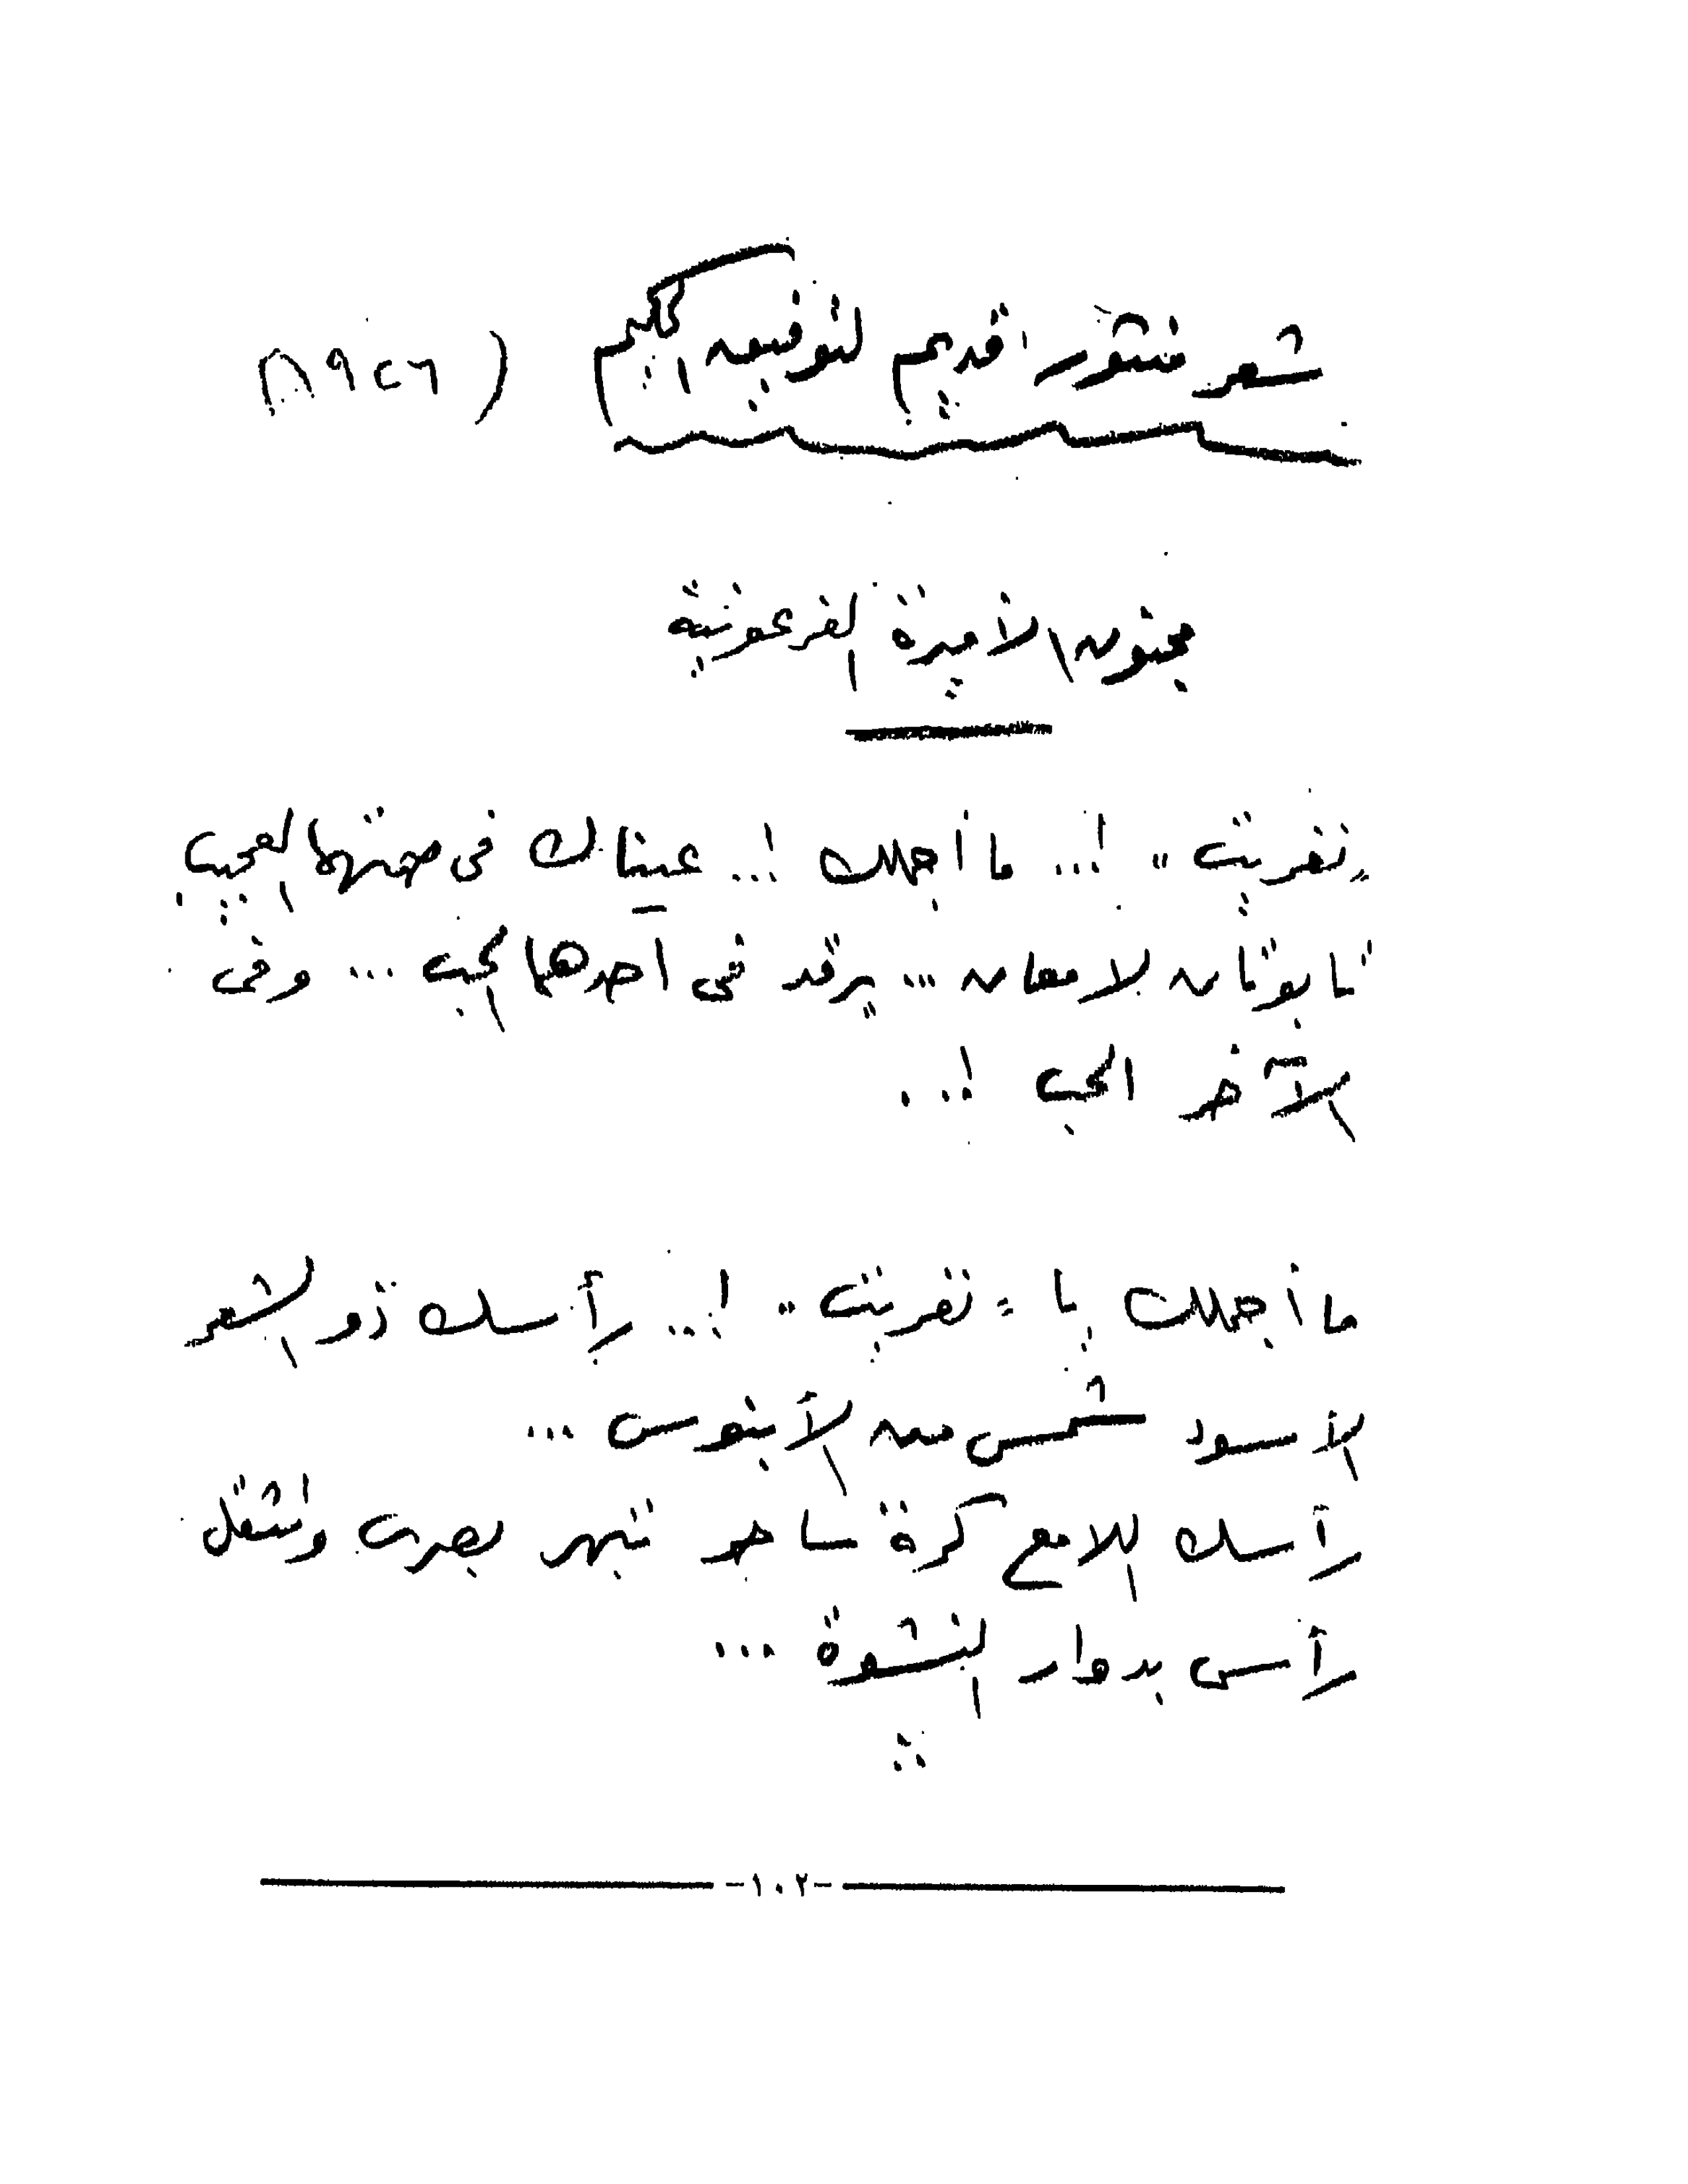 شعر منثور قديم لتوفيق الحكيم (١٩٢٦)
مجنون الأميرة الفرعونية
"نفريت" !... ما أجملك !... عيناك في صمتهما العجيب
تابوتان لامعان ... يرقد في أحدهما الحب ... وفى
الآخر الحب !...
ما أجملك يا "نفريت" !... رأسك ذو الشعر
الأسود شمس من الأبنوس ...
رأسك اللامع كرة ساحر تبهر بصرى وتثقل
رأسى بدوار النشوة ...
-١٠٢-